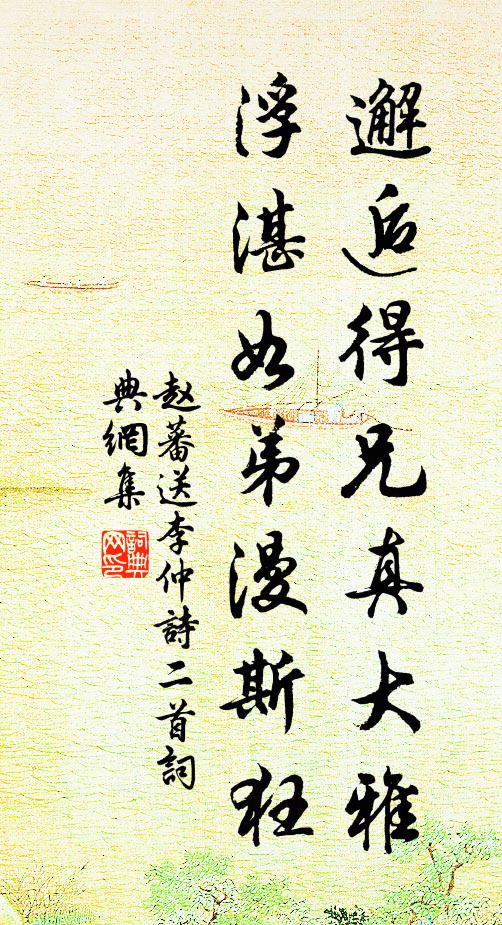 邂逅得兄真大雅
浮湛如弟漫斯狂
赵蕃送李仲詩二首詞
典網集
詞典
网印